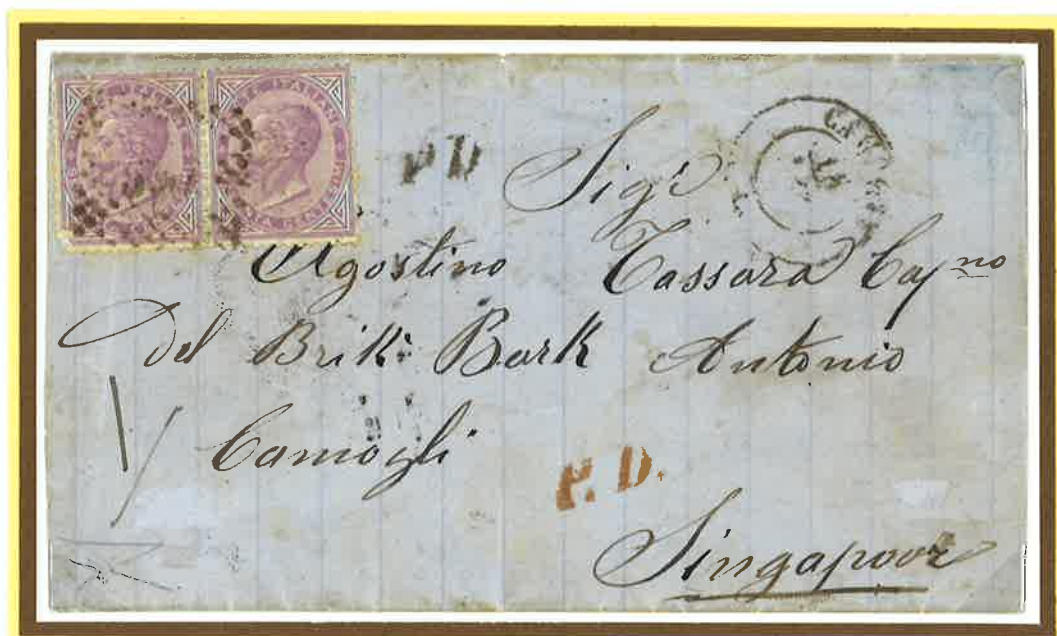 P.D.
Sigr
Agostino Cassara Capno
del Brik: Bark Antonio
Camogli
P. D.
Singapoor